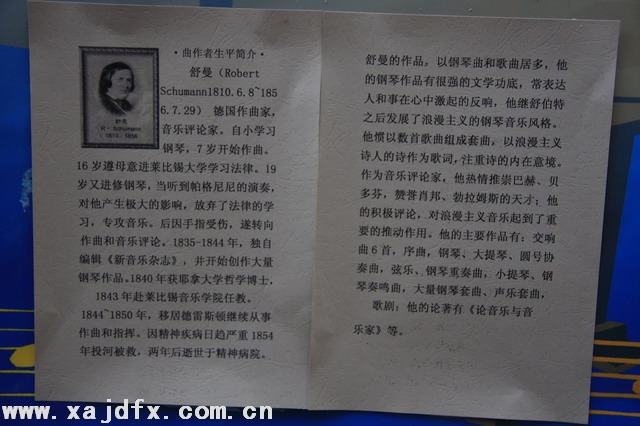 ·曲作者生平简介·
舒曼（Robert
Schumann1810.6.8~185
6.7.29）德国作曲家，
音乐评论家。自小学习
钢琴，7岁开始作曲。
舒曼
R·Schumann
(1810-1856)
16岁遵母意进莱比锡大学学习法律。19
岁又进修钢琴，当听到帕格尼尼的演奏，
对他产生极大的影响，放弃了法律的学
习，专攻音乐。后因手指受伤，遂转向
作曲和音乐评论。1835-1844年，独自
编辑《新音乐杂志》，并开始创作大量
钢琴作品。1840年获耶拿大学哲学博士，
1843年赴莱比锡音乐学院任教。
1844~1850年，移居德雷斯顿继续从事
作曲和指挥。因精神疾病日趋严重1854
年投河被救，两年后逝世于精神病院。
舒曼的作品。以钢琴曲和歌曲居多，他
的钢琴作品有很强的文学功底，常表达
人和事在心中激起的反响，他继舒伯特
之后发展了浪漫主义的钢琴音乐风格。
他惯以数首歌曲组成套曲，以浪漫主义
诗人的诗作为歌词，注重诗的内在意境。
作为音乐评论家，他热情推崇巴赫、贝
多芬，赞誉肖邦、勃拉姆斯的天才；他
的积极评论，对浪漫主义音乐起到了重
要的推动作用。他的主要作品有：交响
曲6首，序曲，钢琴、大提琴、圆号协
奏曲，弦乐、钢琴重奏曲，小提琴、钢
琴奏鸣曲，大量钢琴套曲、声乐套曲，
歌剧；他的论著有《论音乐与音
乐家》等。
www.xajdfx.com.cn